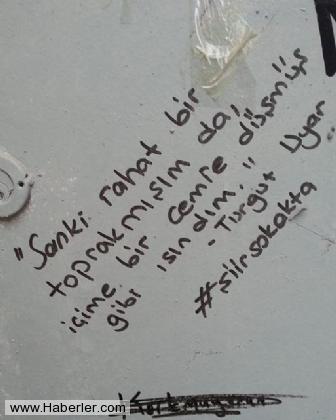 "Sanki rahat bir
toprakmışım da,
içime bir cemre düşmüş
gibi ısındım."
- Turgut Uyar
#siirsokakta
www.Haberler.com